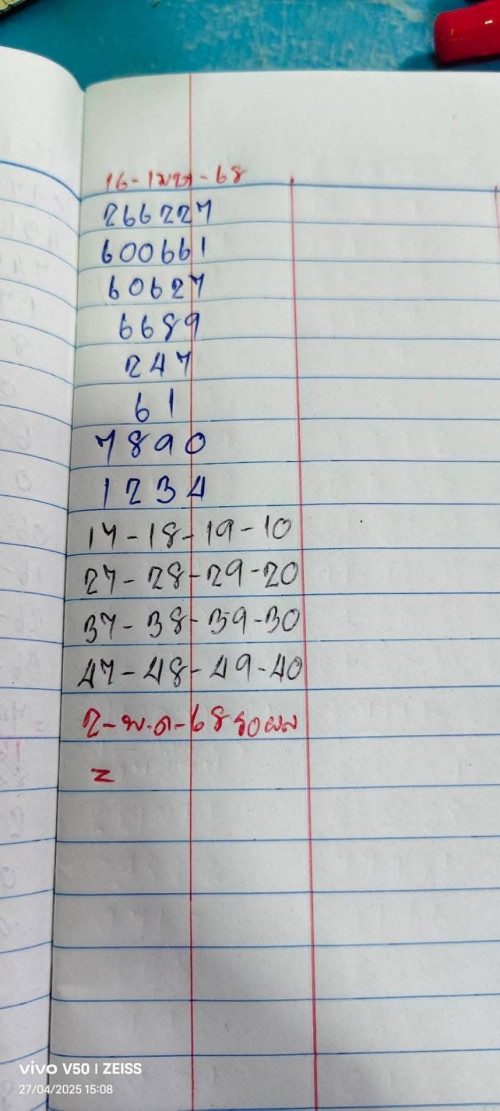 16-เมษา-68
266227
600661
60627
6689
247
61
7890
1234
17-18-19-10
27-28-29-20
37-38-39-30
47-48-49-40
2-พ.ค-68 รอผล
=
vivo V50 | ZEISS
27/04/2025 15:08